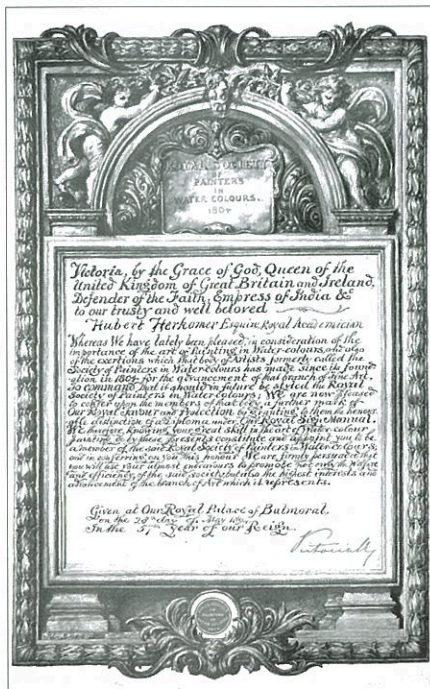 ROYAL SOCIETY
OF
PAINTERS
IN
WATER COLOURS.
1804
Victoria, by the Grace of God, Queen of the
United Kingdom of Great Britain and Ireland,
Defender of the Faith, Empress of India &c
to our trusty and well beloved
Hubert Herkomer Esquire Royal Academician
Whereas We have lately been pleased, in consideration of the
importance of the art of Painting in Water-colours, and also
of the exertions which that body of Artists formerly called the
Society of Painters in Water-colours has made since its found-
ation in 1804 for the advancement of that branch of Fine Art,
to COMMAND that it should in future be styled the Royal
Society of Painters in Water-colours; We are now pleased
to confer upon the members of that body a further mark of
Our Royal favour and Protection by granting to them the honour-
able distinction of a Diploma under Our Royal Sign Manual.
We therefore, knowing your great skill in the art of Water-colour
Painting, do by these presents constitute and appoint you to be
a member of the said Royal Society of Painters in Water-colours,
and in conferring on you this honour We are firmly persuaded that
you will use your utmost endeavours to promote not only the welfare
and efficiency of the said society, but also the highest interests and
advancement of the branch of Art which it represents.
Given at Our Royal Palace of Balmoral
on the 28th day of May
In the 57th Year of our Reign.
Victoria